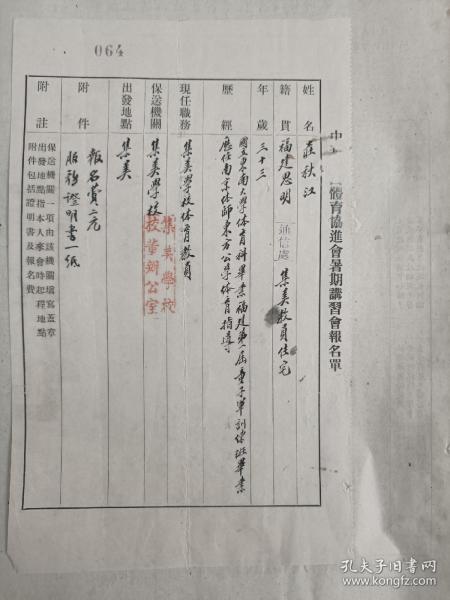 體育協進會暑期講習會報名單
姓名 秋江
籍貫 福建思明 通信處 集美教員住宅
年歲 三十三
歷經 國立東南大學體育科畢業福建第一屆童子軍訓練班畢業
歷任南京体師東方公學体育指導
現任職務 集美學校体育教員
保送機關 集美學校
集美學校
校董辦公室
出發地點 集美
附件 報名費二元
服務證明書一紙
附註 保送機關一項由該機關填寫蓋章
出發地點指本人來會時起程地點
附件包括證明書及報名費
064
孔夫子旧书网
www.kongfz.com